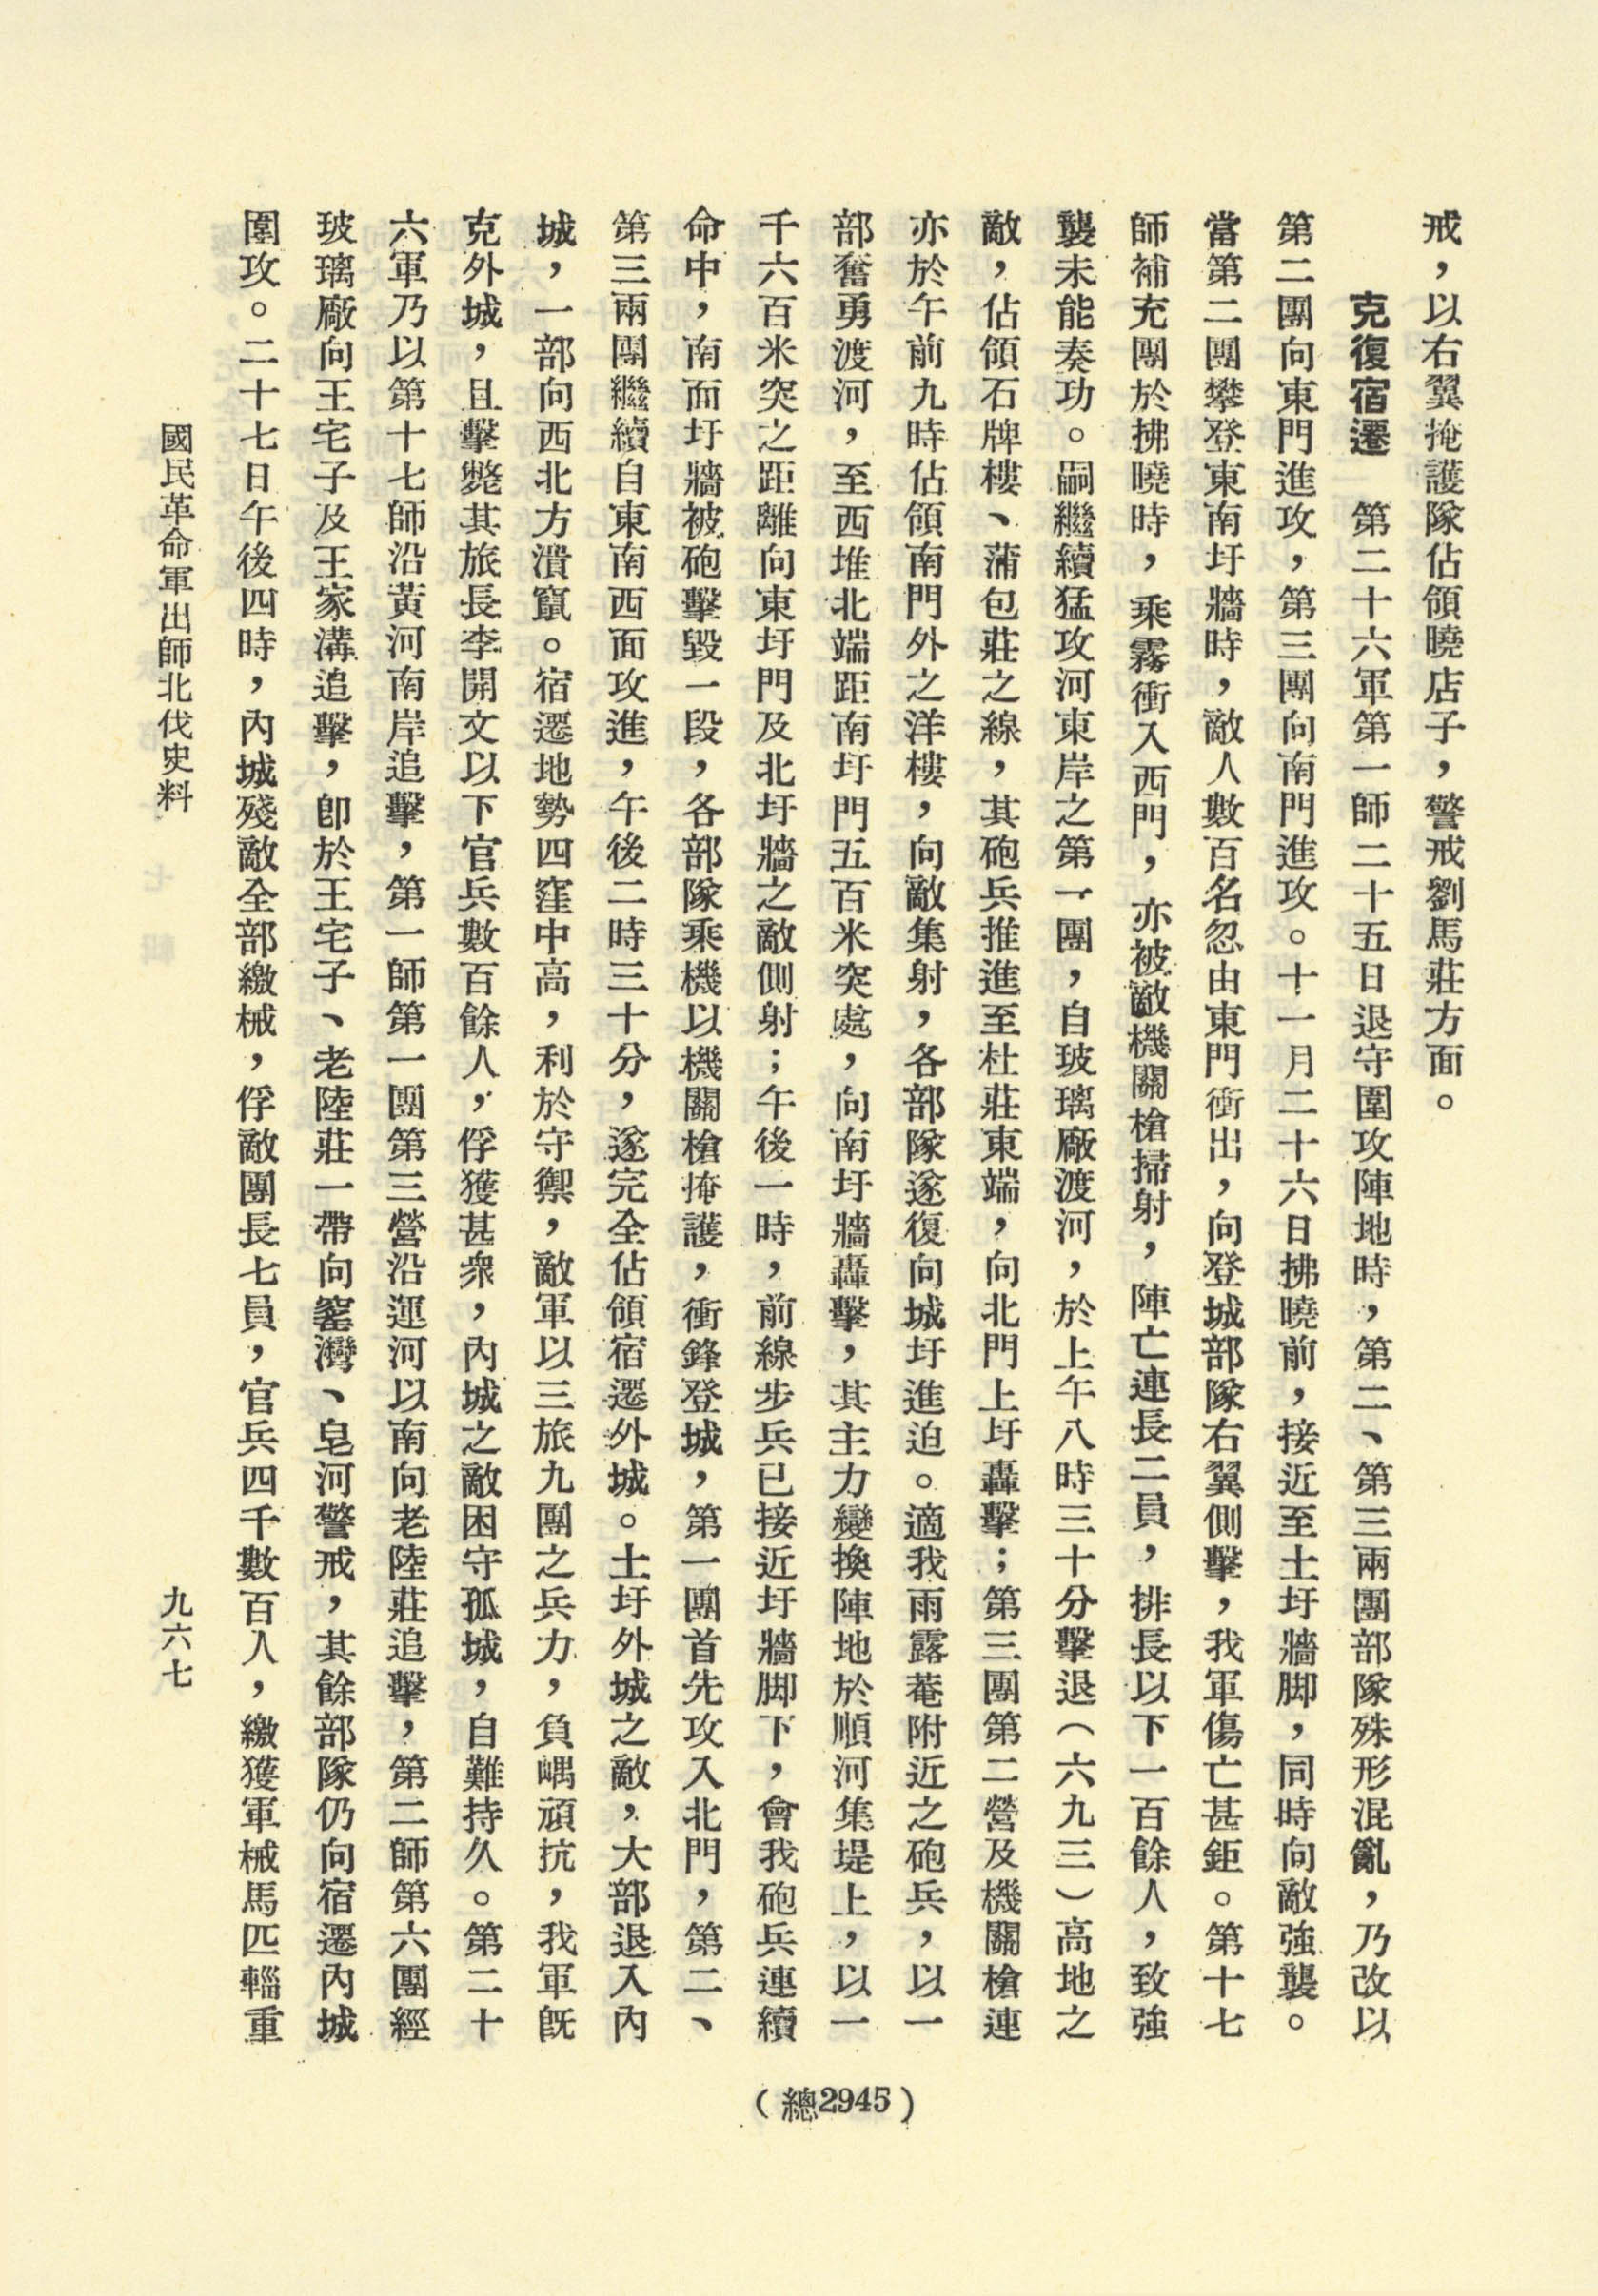 戒，以右翼掩護隊佔領曉店子，警戒劉馬莊方面。
克復宿遷　第二十六軍第一師二十五日退守圍攻陣地時，第二、第三兩團部隊殊形混亂，乃改以
第二團向東門進攻，第三團向南門進攻。十一月二十六日拂曉前，接近至土圩牆脚，同時向敵強襲。
當第二團攀登東南圩牆時，敵人數百名忽由東門衝出，向登城部隊右翼側擊，我軍傷亡甚鉅。第十七
師補充團於拂曉時，乘霧衝入西門，亦被敵機關槍掃射，陣亡連長二員，排長以下一百餘人，致強
襲未能奏功。嗣繼續猛攻河東岸之第一團，自玻璃廠渡河，於上午八時三十分擊退（六九三）高地之
敵，佔領石牌樓、蒲包莊之線，其砲兵推進至杜莊東端，向北門上圩轟擊；第三團第二營及機關槍連
亦於午前九時佔領南門外之洋樓，向敵集射，各部隊遂復向城圩進迫。適我雨露菴附近之砲兵，以一
部奮勇渡河，至西堆北端距南圩門五百米突處，向南圩牆轟擊，其主力變換陣地於順河集堤上，以一
千六百米突之距離向東圩門及北圩牆之敵側射；午後一時，前線步兵已接近圩牆脚下，會我砲兵連續
命中，南面圩牆被砲擊毀一段，各部隊乘機以機關槍掩護，衝鋒登城，第一團首先攻入北門，第二、
第三兩團繼續自東南西面攻進，午後二時三十分，遂完全佔領宿遷外城。土圩外城之敵，大部退入內
城，一部向西北方潰竄。宿遷地勢四窪中高，利於守禦，敵軍以三旅九團之兵力，負嵎頑抗，我軍既
克外城，且擊斃其旅長李開文以下官兵數百餘人，俘獲甚衆，內城之敵困守孤城，自難持久。第二十
六軍乃以第十七師沿黃河南岸追擊，第一師第一團第三營沿運河以南向老陸莊追擊，第二師第六團經
玻璃廠向王宅子及王家溝追擊，卽於王宅子、老陸莊一帶向窰灣、皂河警戒，其餘部隊仍向宿遷內城
圍攻。二十七日午後四時，內城殘敵全部繳械，俘敵團長七員，官兵四千數百人，繳獲軍械馬匹輜重
國民革命軍出師北伐史料
九六七
（總2945）